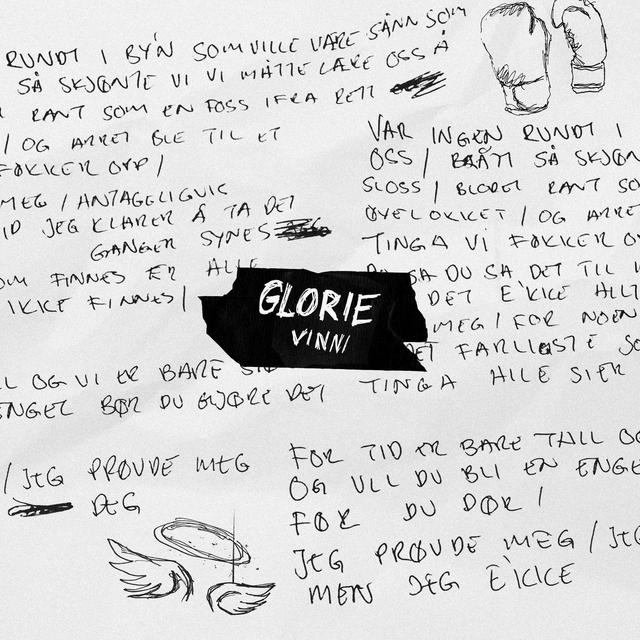 RUNDT I BY'N SOM VILLE VÆRE SÅNN SOM
SÅ SKJØNTE VI VI MÅTTE LÆRE OSS Å
RANT SOM EN FOSS IFRA RETT
/ OG ARRET BLE TIL ET
FØKKER OPP /
MEG / ANTAGELIGVIS
TID JEG KLARER Å TA DET
GANGER SYNES
OM FINNES ER ALLE
IKKE FINNES /
GLORIE
VINNI
OG VI ER BARE
ENGEL BØR DU GJØRE DET
/ JEG PRØVDE MEG
DEG
VAR INGEN RUNDT I
OSS / BRÅTT SÅ SKJØN
SLOSS / BLODET RANT SO
ØYELOKKET / OG ARRE
TINGA VI FØKKER O
SA DU SA DET TIL
DET E'KKE HELT
MEG / FOR NOEN
DET FARLIGSTE SO
TINGA HILE SIER
FOR TID ER BARE TALL OG
OG VLL DU BLI EN ENGE
FØR DU DØR /
JEG PRØVDE MEG / JEG
MEN JEG E'KKE